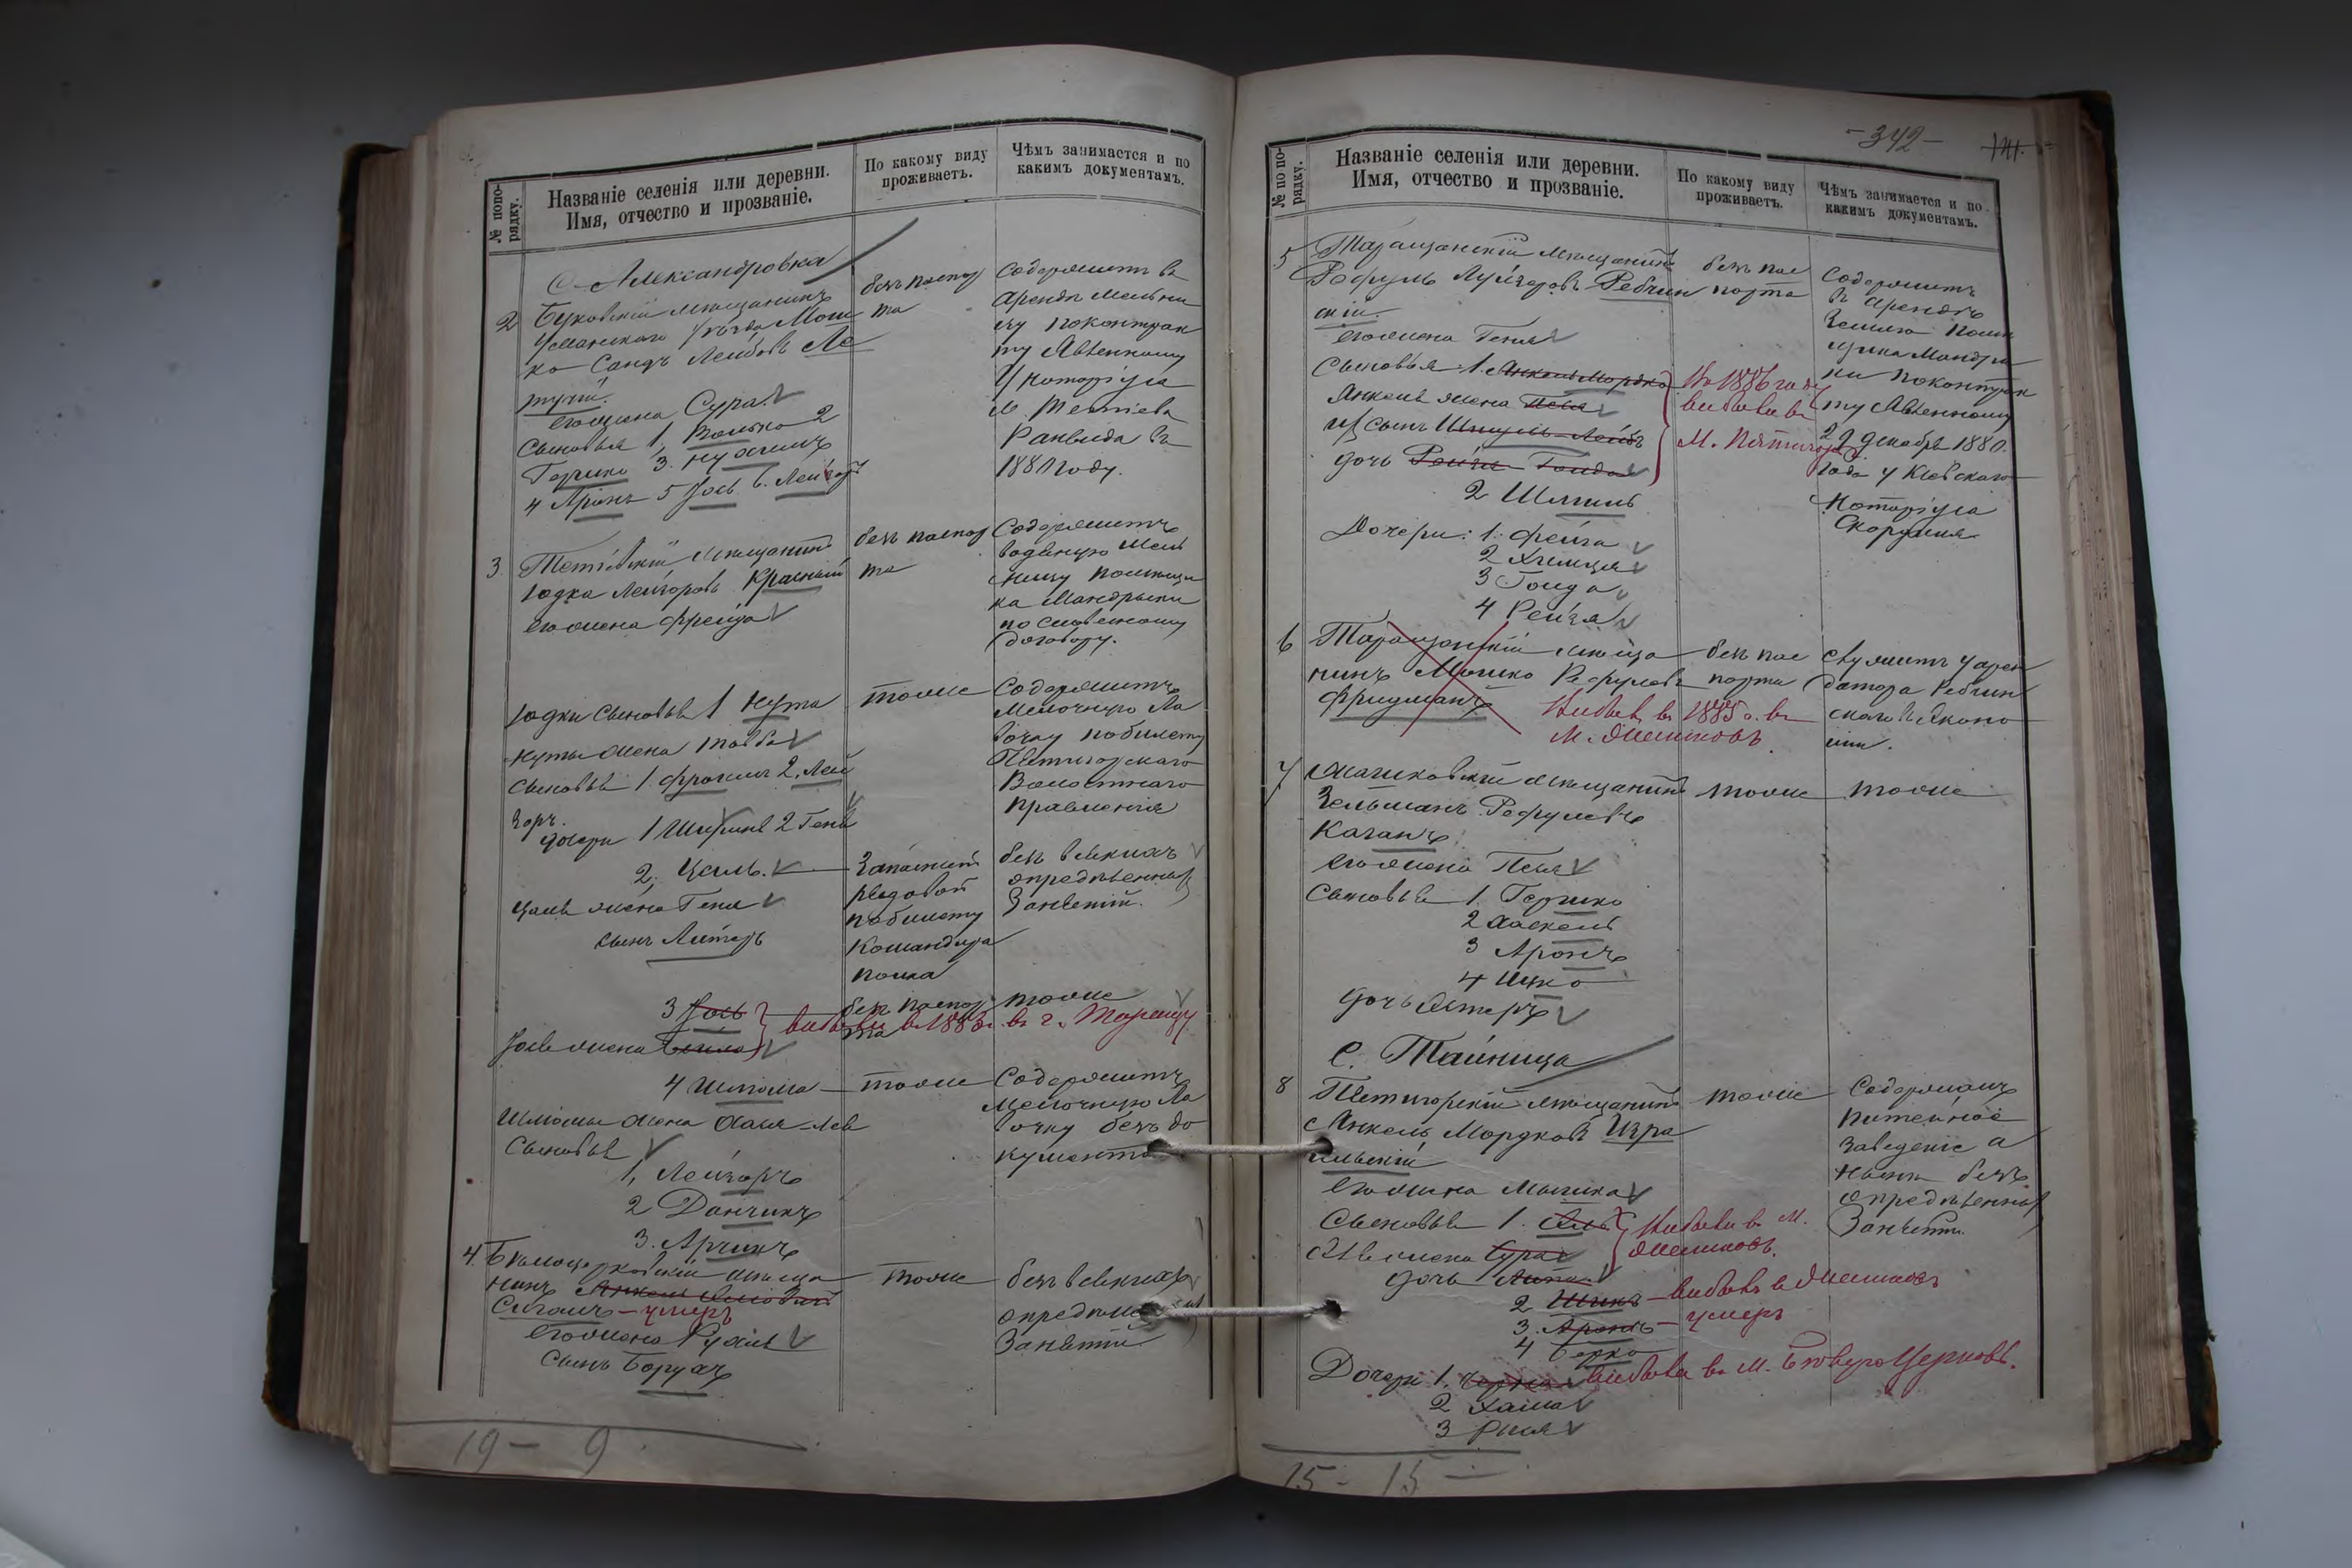 № по по-
рядку.
Названіе селенія или деревни.
Имя, отчество и прозваніе.
По какому виду
проживаетъ.
Чѣмъ занимается и по
какимъ документамъ.
С. Александровка
2
Буковскій мѣщанинъ
Уманскаго уѣзда Мош
ко Сандъ Лейбовъ
его жена Сура
Сыновья 1, Волько 2
Гершко 3. Нухимъ
4 Аронъ 5 Іось 6. Лейзоръ
безъ паспор
та
Содержитъ въ
арендѣ мельни
цу по контрак
ту явленному
У нотаріуса
м. Тетіева
въ
1881 году.
3.
Тетіевскій мѣщанинъ
Іодка Лейзоровъ Красный
его жена Фрейда
безъ паспор
та
Содержитъ
водяную мель
ницу помѣщи
ка Мандрыки
по словесному
договору.
Іодки сыновья 1 Нута
Нуты жена Тойба
Сыновья 1. Фроимъ 2. Лей
зоръ.
дочери 1 2 Геня
тоже
Содержитъ
мелочную ла
вочку по билету
Пятигорскаго
Волостнаго
правленія
2, Цаль.
Цаля жена Геня
сынъ
Запасный
рядовой
по билету
Командира
полка
безъ всякихъ
опредѣленныхъ
Занятій.
3 Іось
Іося жена Бейла
безъ паспор
та
тоже
выбылъ въ 1883 г. въ г. Таращу
4 Шлома
Шломы жена Хая-Лея
Сыновья
1, Лейзоръ
2 Данчикъ
3. Арчикъ
тоже
Содержитъ
мелочную ла
вочку безъ до
кумента
4.
Бѣлоцерковскій мѣща
нинъ Янкель
Сиганъ - умеръ
его жена Рухля
Сынъ Борухъ
тоже
безъ всякихъ
опредѣленныхъ
Занятій
19 - 9.
-342-
№ по по-
рядку.
Названіе селенія или деревни.
Имя, отчество и прозваніе.
По какому виду
проживаетъ.
Чѣмъ занимается и по
какимъ документамъ.
5
Таращанскій мѣщанинъ
Рафуль Лейзеровъ Ребчин
скій.
его жена Геня
Сыновья 1. Янкель Мордко
Янкеля жена Песя
их сынъ Шмуль-Лейбъ
дочь Рейзя Гольда
2 Шмиль
Дочери: 1. Фейга
2
3 Гольда
4 Рейзя
въ 1886 году
выбыли въ
М. Пятигоры
безъ пас
порта
Содержитъ
въ арендѣ
Землю помѣ
щика Мандры
ки по контрак
ту явленному
29 декабря 1880.
года у Кіевскаго
Нотаріуса
6
Таращанскій мѣща
нинъ Мошко Рафулевъ
Фридманъ
Выбылъ въ 1885 г. въ
М. Жашковъ.
безъ пас
порта
служитъ у арен
датора Ребчин
скаго въ эконо
міи.
7
Жашковскій мѣщанинъ
Зельманъ Рафулевъ
Каганъ
его жена Песя
Сыновья 1. Гершко
2 Хаскель
3 Аронъ
4 Ицко
дочь Эстеръ
тоже
тоже
С. Тайница
8
Пятигорскій мѣщанинъ
Янкель Мордковъ Изра
ильскій
его жена Малька
Сыновья 1.
жена Сура
дочь
выбыли въ М.
Жашковъ.
2 - выбылъ въ Жашковъ
3. Аронъ - умеръ
4 Берко
Дочери 1. Черна выбыла въ М. Бѣлую Церковь.
2 Хаша
3
тоже
Содержалъ
питейное
заведеніе а
нынѣ безъ
опредѣленныхъ
Занятій.
15 - 15 -